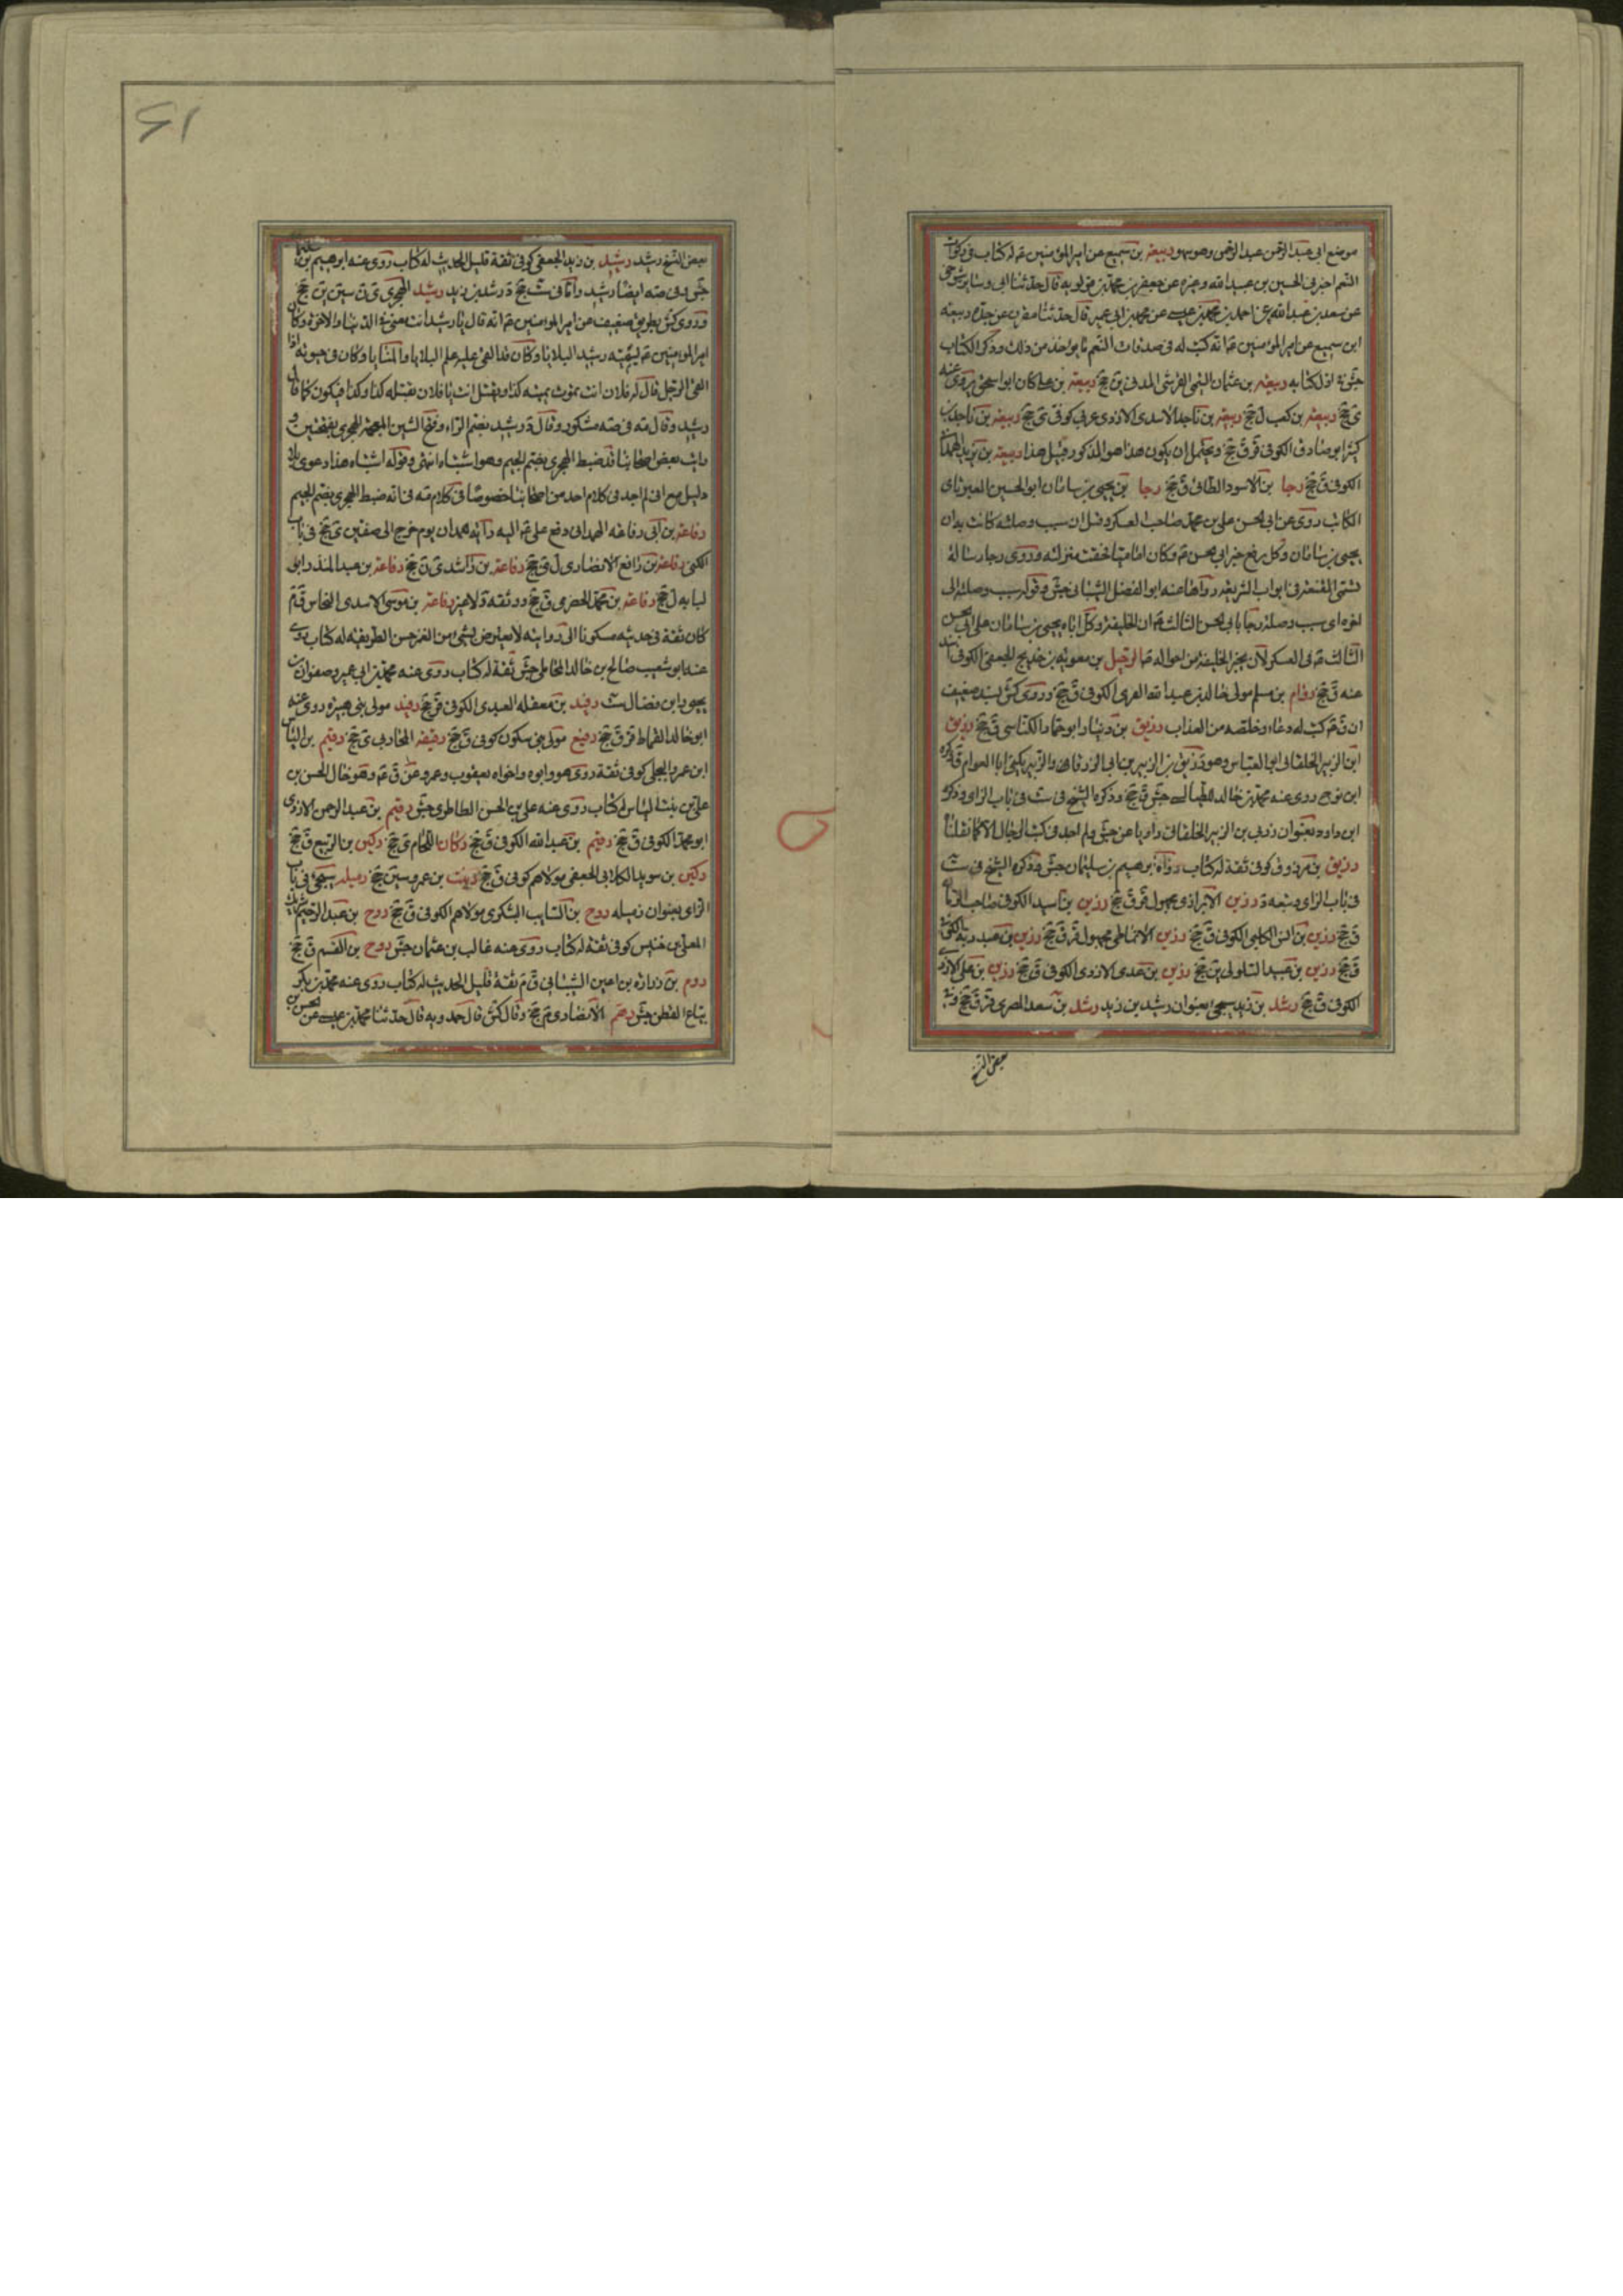 موضع ابي عبد الرحمن عبد الرحمن وهو سهو ربيعة بن سميع عن امير المؤمنين ع له كتاب في زكوات
النعم اخبرني الحسين بن عبيد الله وغيره عن جعفر بن محمد بن قولويه قال حدثنا ابي وسائر شيوخي
عن سعد بن عبد الله عن احمد بن محمد بن عيسى عن محمد بن ابي عمير قال حدثنا مقرن عن جده ربيعة
ابن سميع عن امير المؤمنين ع انه كتب له في صدقات النعم وما يؤخذ من ذلك وذكر الكتاب
جش في اول كتابه ربيعة بن عثمان التيمي القرشي المدني ين جخ ربيعة بن علي كان ابو اسحق يروي عنه
ي جخ ربيعة بن كعب ل جخ ربيعة بن ناجد الاسدي الازدي عربي كوفي ي جخ ربيعة بن ناجد بن
كثير ابو صادق الكوفي قر ق جخ ويحتمل ان يكون هذا هو المذكور قبيل هذا ربيعة بن يزيد الهمداني
الكوفي ق جخ رجا بن الاسود الطائي ق جخ رجا بن يحيى بن سامان ابو الحسين العبرتائي
الكاتب روى عن ابي الحسن علي بن محمد صاحب العسكر وقيل ان سبب وصلته كانت به ان
يحيى بن سامان وكل برفع خبر ابي الحسن ع وكان اماميا فحظيت منزلته وروى رجا رسالة
تسمى المقنعة في ابواب الشريعة رواها عنه ابو المفضل الشيباني جش وقوله سبب وصلته الى
اخره اي سبب وصلة رجا بابي الحسن الثالث ع ان الخليفة وكل اباه يحيى بن سامان على ابي الحسن
الثالث ع في العسكر لان يخبر الخليفة من احواله الرحيل بن معوية بن خديج الجعفي الكوفي اسند
عنه ق جخ رزام بن مسلم مولى خالد بن عبد الله القسري الكوفي ق جخ وروى كش بسند ضعيف
ان ق ع كتب له دعاء وخلصه من العذاب رزيق بن دينار ابو حماد الكناسي ق جخ رزيق
ابن الزبير الخلقاني ابو العباس وهو رزيق بن الزبير بن ابي الزرقاء والزبير يكنى ابا العوام ق ذكره
ابن نوح روى عنه محمد بن خالد الطيالسي جش ق جخ وذكره الشيخ في ست في باب الزاي وذكره
ابن داود بعنوان زريق بن الزبير الخلقاني راويا عن جش ولم اجد في كتب الرجال الا كما نقلناه
رزيق بن مرزوق كوفي ثقة له كتاب رواه ابرهيم بن سليمان جش وذكره الشيخ في ست
في باب الزاي وتبعه د رزين الابزاري مجهول قر ق جخ رزين بن اسيد الكوفي صاحب الرمان
ق جخ رزين بن انس الكلبي الكوفي ق جخ رزين الانماطي مجهول قر ق جخ رزين بن عبد ربه الكوفي
ق جخ رزين بن عبيد السلولي ين جخ رزين بن عدي الازدي الكوفي ق جخ رزين بن علي الازدي
الكوفي ق جخ رشد بن زيد سيجئ بعنوان رشيد بن زيد رشد بن سعد المصري قر ق جخ وفي
بعض النسخ
٢١
بعض النسخ رشيد رشيد بن زيد الجعفي كوفي ثقة قليل الحديث له كتاب روى عنه ابرهيم بن سليمان
جش وفي صه ايضا رشيد واما في ست جخ د رشد بن زيد رشيد الهجري ي ن سين ين جخ
وروى كش بطريق ضعيف عن امير المؤمنين ع انه قال يا رشيد انت معي في الدنيا والاخرة وكان
امير المؤمنين ع يسميه رشيد البلايا وكان قد القي عليه علم البلايا والمنايا وكان في حيوته اذا
لقي الرجل قال له فلان انت تموت بميتة كذا وتقتل انت يا فلان بقتلة كذا وكذا فيكون كما قال
رشيد وقال مه في صه مشكور وقال د رشيد بضم الراء وفتح الشين المعجمة الهجري بفتحتين و
رايت بعض اصحابنا قد ضبط الهجري بضم الجيم وهو اشتباه انتهى وقوله اشتباه هذا دعوى بلا
دليل مع اني لم اجد في كلام احد من اصحابنا خصوصا في كلام مه فانه ضبط الهجري بضم الجيم
رفاعة بن ابي رفاعة الهمداني دفع علي ع اليه راية همدان يوم خرج الى صفين ي جخ في باب
الكنى رفاعة بن رافع الانصاري ل ي جخ رفاعة بن راشد ي ن جخ رفاعة بن عبد المنذر ابو
لبابه ل جخ رفاعة بن محمد الحضرمي ق جخ د وثقه د لا غير رفاعة بن موسى الاسدي النخاس ق م
كان ثقة في حديثه مسكونا الى روايته لا يعترض بشئ من الغمز حسن الطريقة له كتاب روى
عنه ابو شعيب صالح بن خالد المحاملي جش ثقة له كتاب روى عنه محمد بن ابي عمير وصفوان بن
يحيى وابن فضال ست رفيد بن مصقلة العبدي الكوفي قر جخ رفيد مولى بني هبيرة روى عنه
ابو خالد القماط قر ق جخ رفيع مولى بني سكون كوفي ق جخ رقبة المحاربي ي جخ رقيم بن الياس
ابن عمرو البجلي كوفي ثقة روى هو وابوه واخواه يعقوب وعمرو عن ق ع وهو خال الحسن بن
علي بن بنت الياس له كتاب روى عنه علي بن الحسن الطاطري جش رقيم بن عبد الرحمن الازدي
ابو محمد الكوفي ق جخ رقيم بن عبد الله الكوفي ق جخ ركان اللحام ي جخ ركين بن الربيع ق جخ
ركين بن سويد الكلابي الجعفي مولاهم كوفي ق جخ بن عمرو سين جخ رميله سيجئ في باب
الزاي بعنوان زميله روح بن السايب اليشكري مولاهم الكوفي ق جخ روح بن عبد الرحيم شريك
المعلى بن خنيس كوفي ثقة له كتاب روى عنه غالب بن عثمان جش روح بن القسم ق جخ
روم بن زرارة بن اعين الشيباني ق م ثقة قليل الحديث له كتاب روى عنه محمد بن بكر
بياع القطن جش رهم الانصاري م جخ وقال كش قال حمدويه قال حدثنا محمد بن عيسى عن الحسن بن